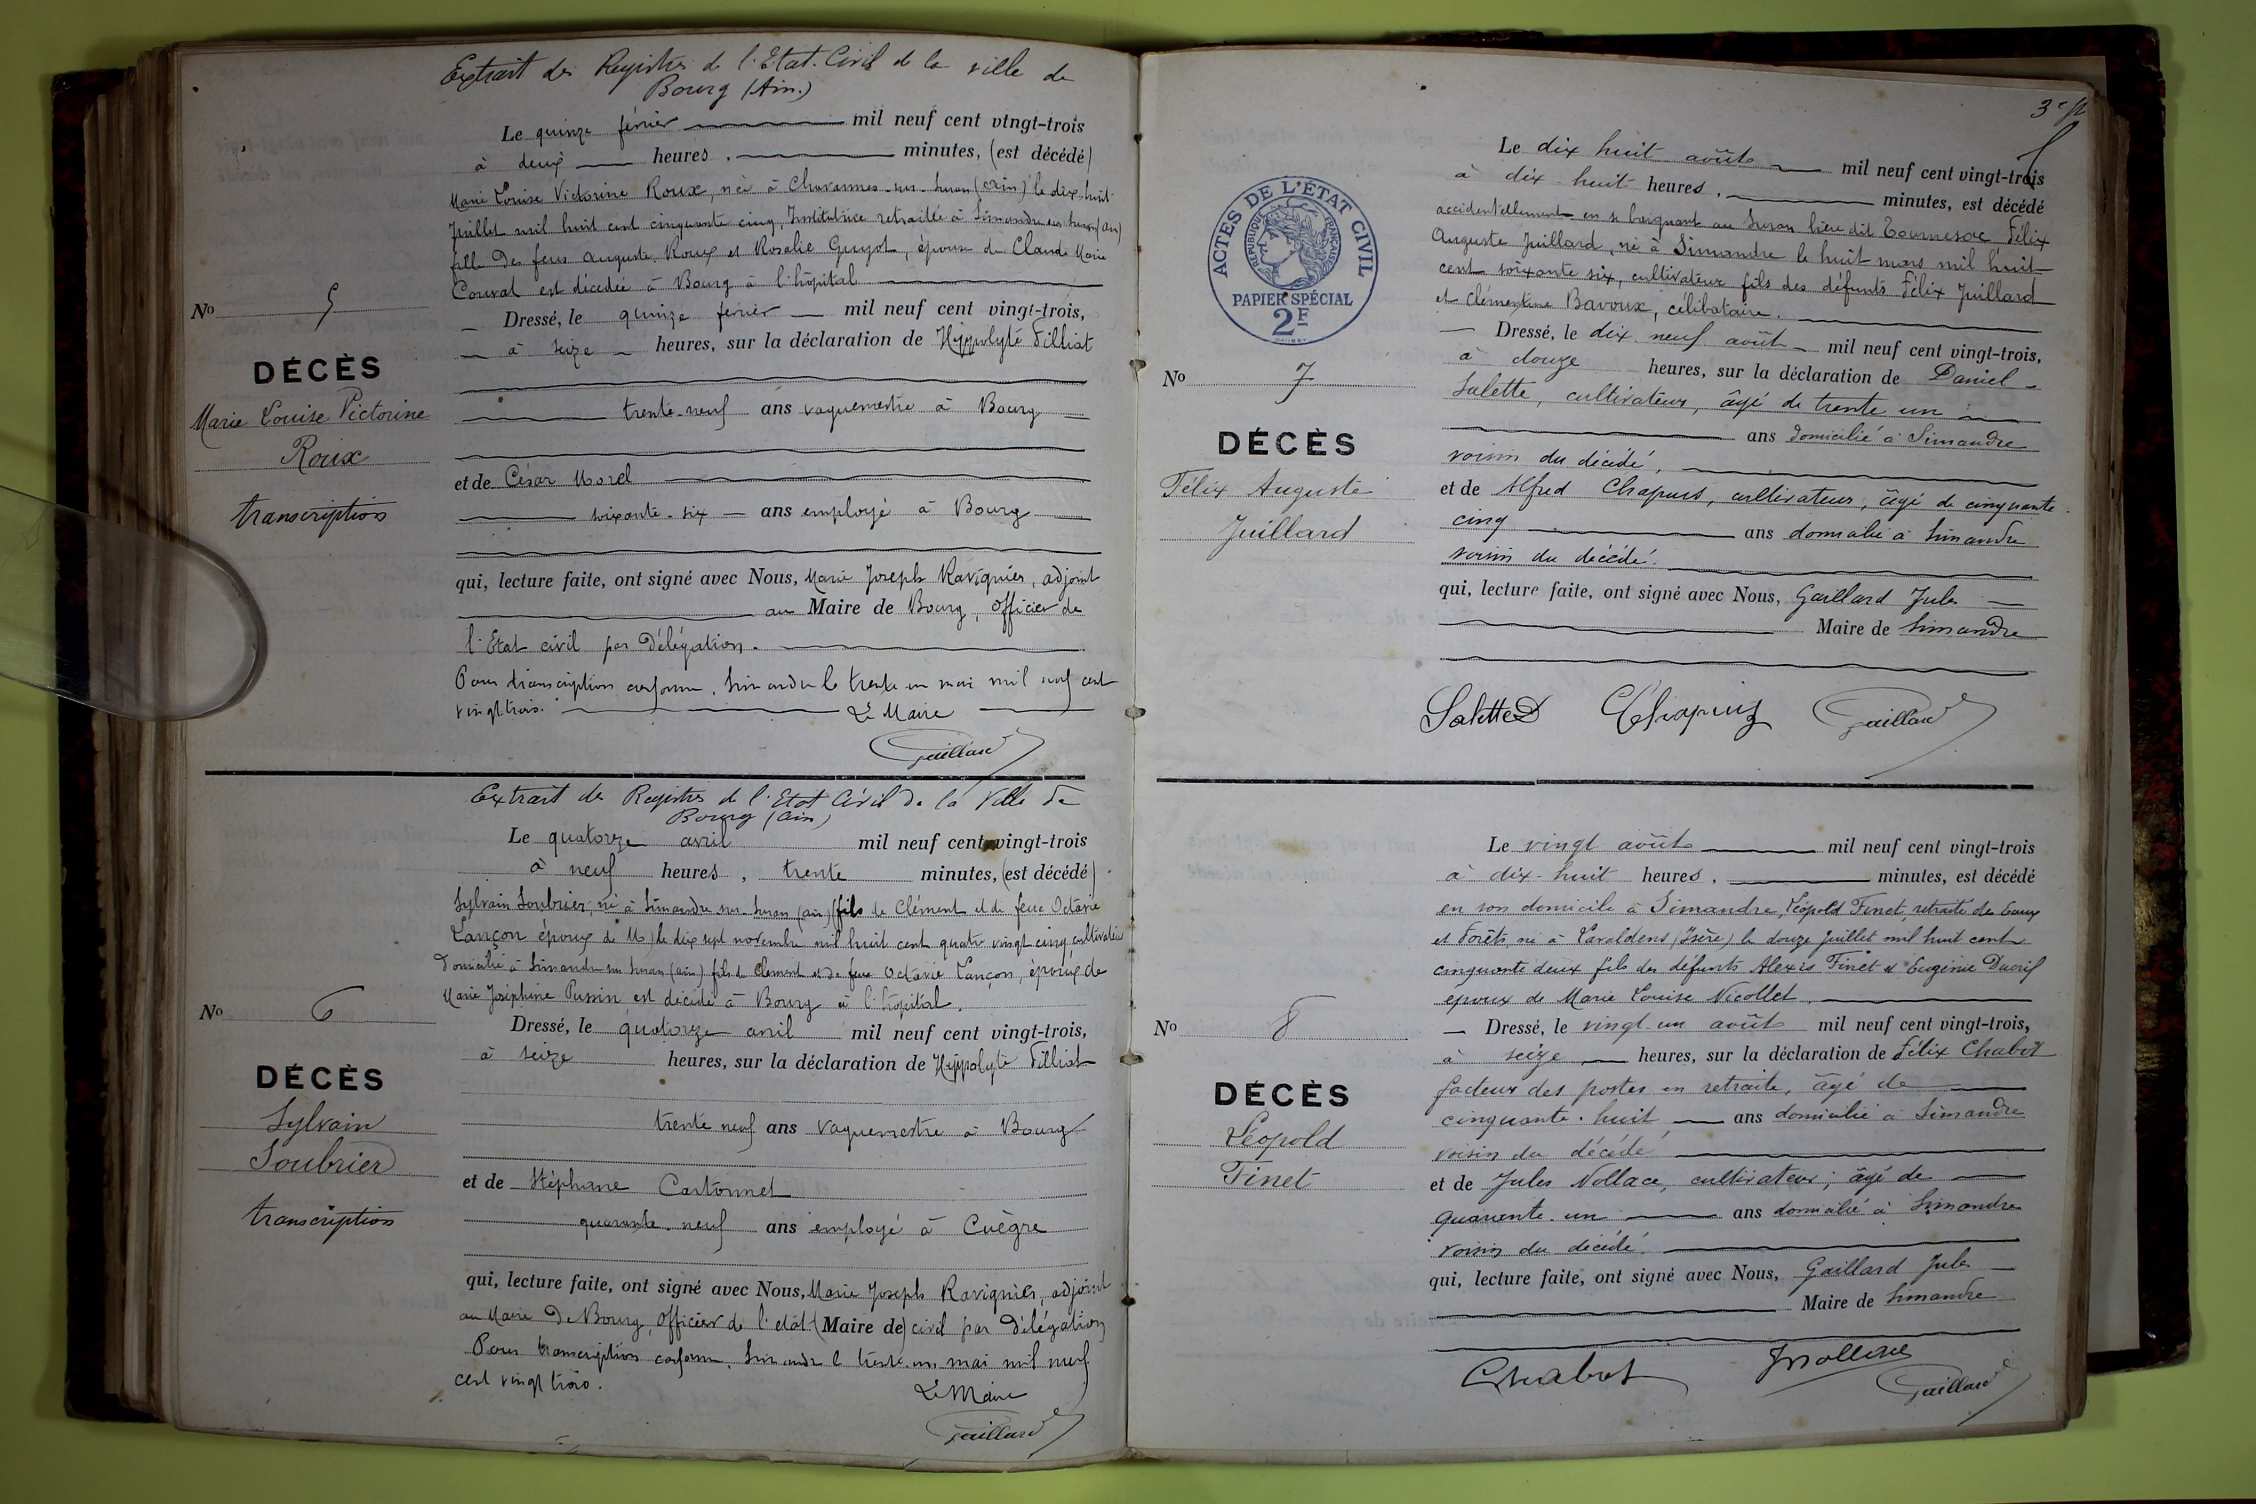 Extrait des Registres de l'Etat-Civil de la ville de
Bourg (Ain.)
Le quinze février mil neuf cent vingt-trois
à deux heures, minutes, (est décédé)
Marie Louise Victorine Roux, née à Chavannes-sur-Suran (Ain) le dix-huit
Juillet mil huit cent cinquante cinq, Institutrice retraitée à Simandre sur Suran (Ain)
fille des feus Auguste Roux et Rosalie Guyot, épouse de Claude Marie
Couval est décédée à Bourg à l'hôpital
No 5
Dressé, le quinze février mil neuf cent vingt-trois,
à seize heures, sur la déclaration de Hyppolyte Filliat
DÉCÈS
Marie Louise Victorine
Roux
transcription
trente-neuf ans vaguemestre à Bourg
et de César Morel
soixante-six ans employé à Bourg
qui, lecture faite, ont signé avec Nous, Marie Joseph Ravignier, adjoint
au Maire de Bourg, officier de
l'Etat civil par Délégation.
Pour transcription conforme, Simandre le trente un mai mil neuf cent
vingt trois. Le Maire
Gaillard
Extrait des Registres de l'Etat Civil de la Ville de
Bourg (Ain)
Le quatorze avril mil neuf cent vingt-trois
à neuf heures, trente minutes, (est décédé)
Sylvain Soubrier, né à Simandre sur Suran (Ain) (fils de Clément et de feue Octavie
Lançon époux de M) le dix sept novembre mil huit cent quatre vingt cinq cultivateur
domicilié à Simandre sur Suran (Ain) fils de Clément et de feue Octavie Lançon, époux de
Marie Joséphine Pussin est décédé à Bourg à l'hôpital.
No 6
Dressé, le quatorze avril mil neuf cent vingt-trois,
à seize heures, sur la déclaration de Hyppolyte Filliat
DÉCÈS
Sylvain
Soubrier
transcription
trente neuf ans vaguemestre à Bourg
et de Stéphane Cartonnet
quarante-neuf ans employé à Cuègre
qui, lecture faite, ont signé avec Nous, Marie Joseph Ravignier, adjoint
au Maire de Bourg, officier de l'etat (Maire de) civil par délégation
Pour transcription conforme, Simandre le trente un mai mil neuf
cent vingt trois.
Le Maire
Gaillard
3e
Le dix huit août mil neuf cent vingt-trois
à dix-huit heures, minutes, est décédé
accidentellement en se baignant au Suran lieu dit Tournesoc Félix
Auguste Juillard, né à Simandre le huit mars mil huit
cent soixante six, cultivateur fils des défunts Félix Juillard
et Clémentine Bavoux, célibataire.
ACTES DE L'ÉTAT CIVIL
RÉPUBLIQUE FRANÇAISE
PAPIER SPÉCIAL
2F
No 7
Dressé, le dix neuf août mil neuf cent vingt-trois,
à douze heures, sur la déclaration de Daniel
Salette, cultivateur, âgé de trente un
ans domicilié à Simandre
voisin du décédé,
DÉCÈS
Félix Auguste
Juillard
et de Alfred Chapuis, cultivateur, âgé de cinquante
cinq ans domicilié à Simandre
voisin du décédé.
qui, lecture faite, ont signé avec Nous, Gaillard Jules
Maire de Simandre
Salette D Chapuis Gaillard
Le vingt août mil neuf cent vingt-trois
à dix-huit heures, minutes, est décédé
en son domicile à Simandre, Léopold Finet, retraité des Eaux
et Forêts, né à Lavaldens (Isère) le douze Juillet mil huit cent
cinquante deux fils des défunts Alexis Finet et Eugénie Ducrif
époux de Marie Louise Nicollet.
No 8
Dressé, le vingt-un août mil neuf cent vingt-trois,
à seize heures, sur la déclaration de Félix Chabot
facteur des postes en retraite, âgé de
cinquante-huit ans domicilié à Simandre
voisin du décédé
DÉCÈS
Léopold
Finet
et de Jules Nollace, cultivateur, âgé de
quarante-un ans domicilié à Simandre
voisin du décédé.
qui, lecture faite, ont signé avec Nous, Gaillard Jules
Maire de Simandre
Chabot Gaillard